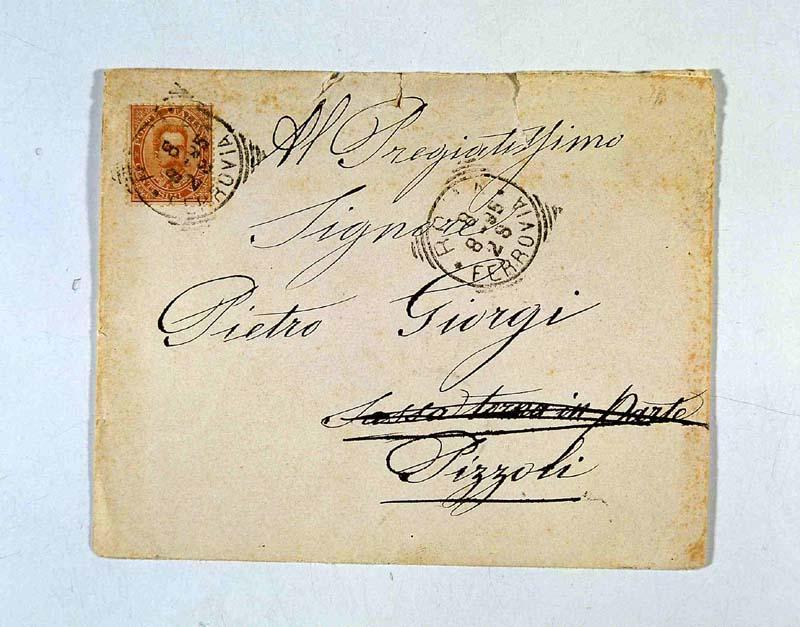 Al Pregiatissimo
Signore
Pietro Giorgi
in Parte
Pizzoli
8 8
95
28
FERROVIA
8
95
OVIA